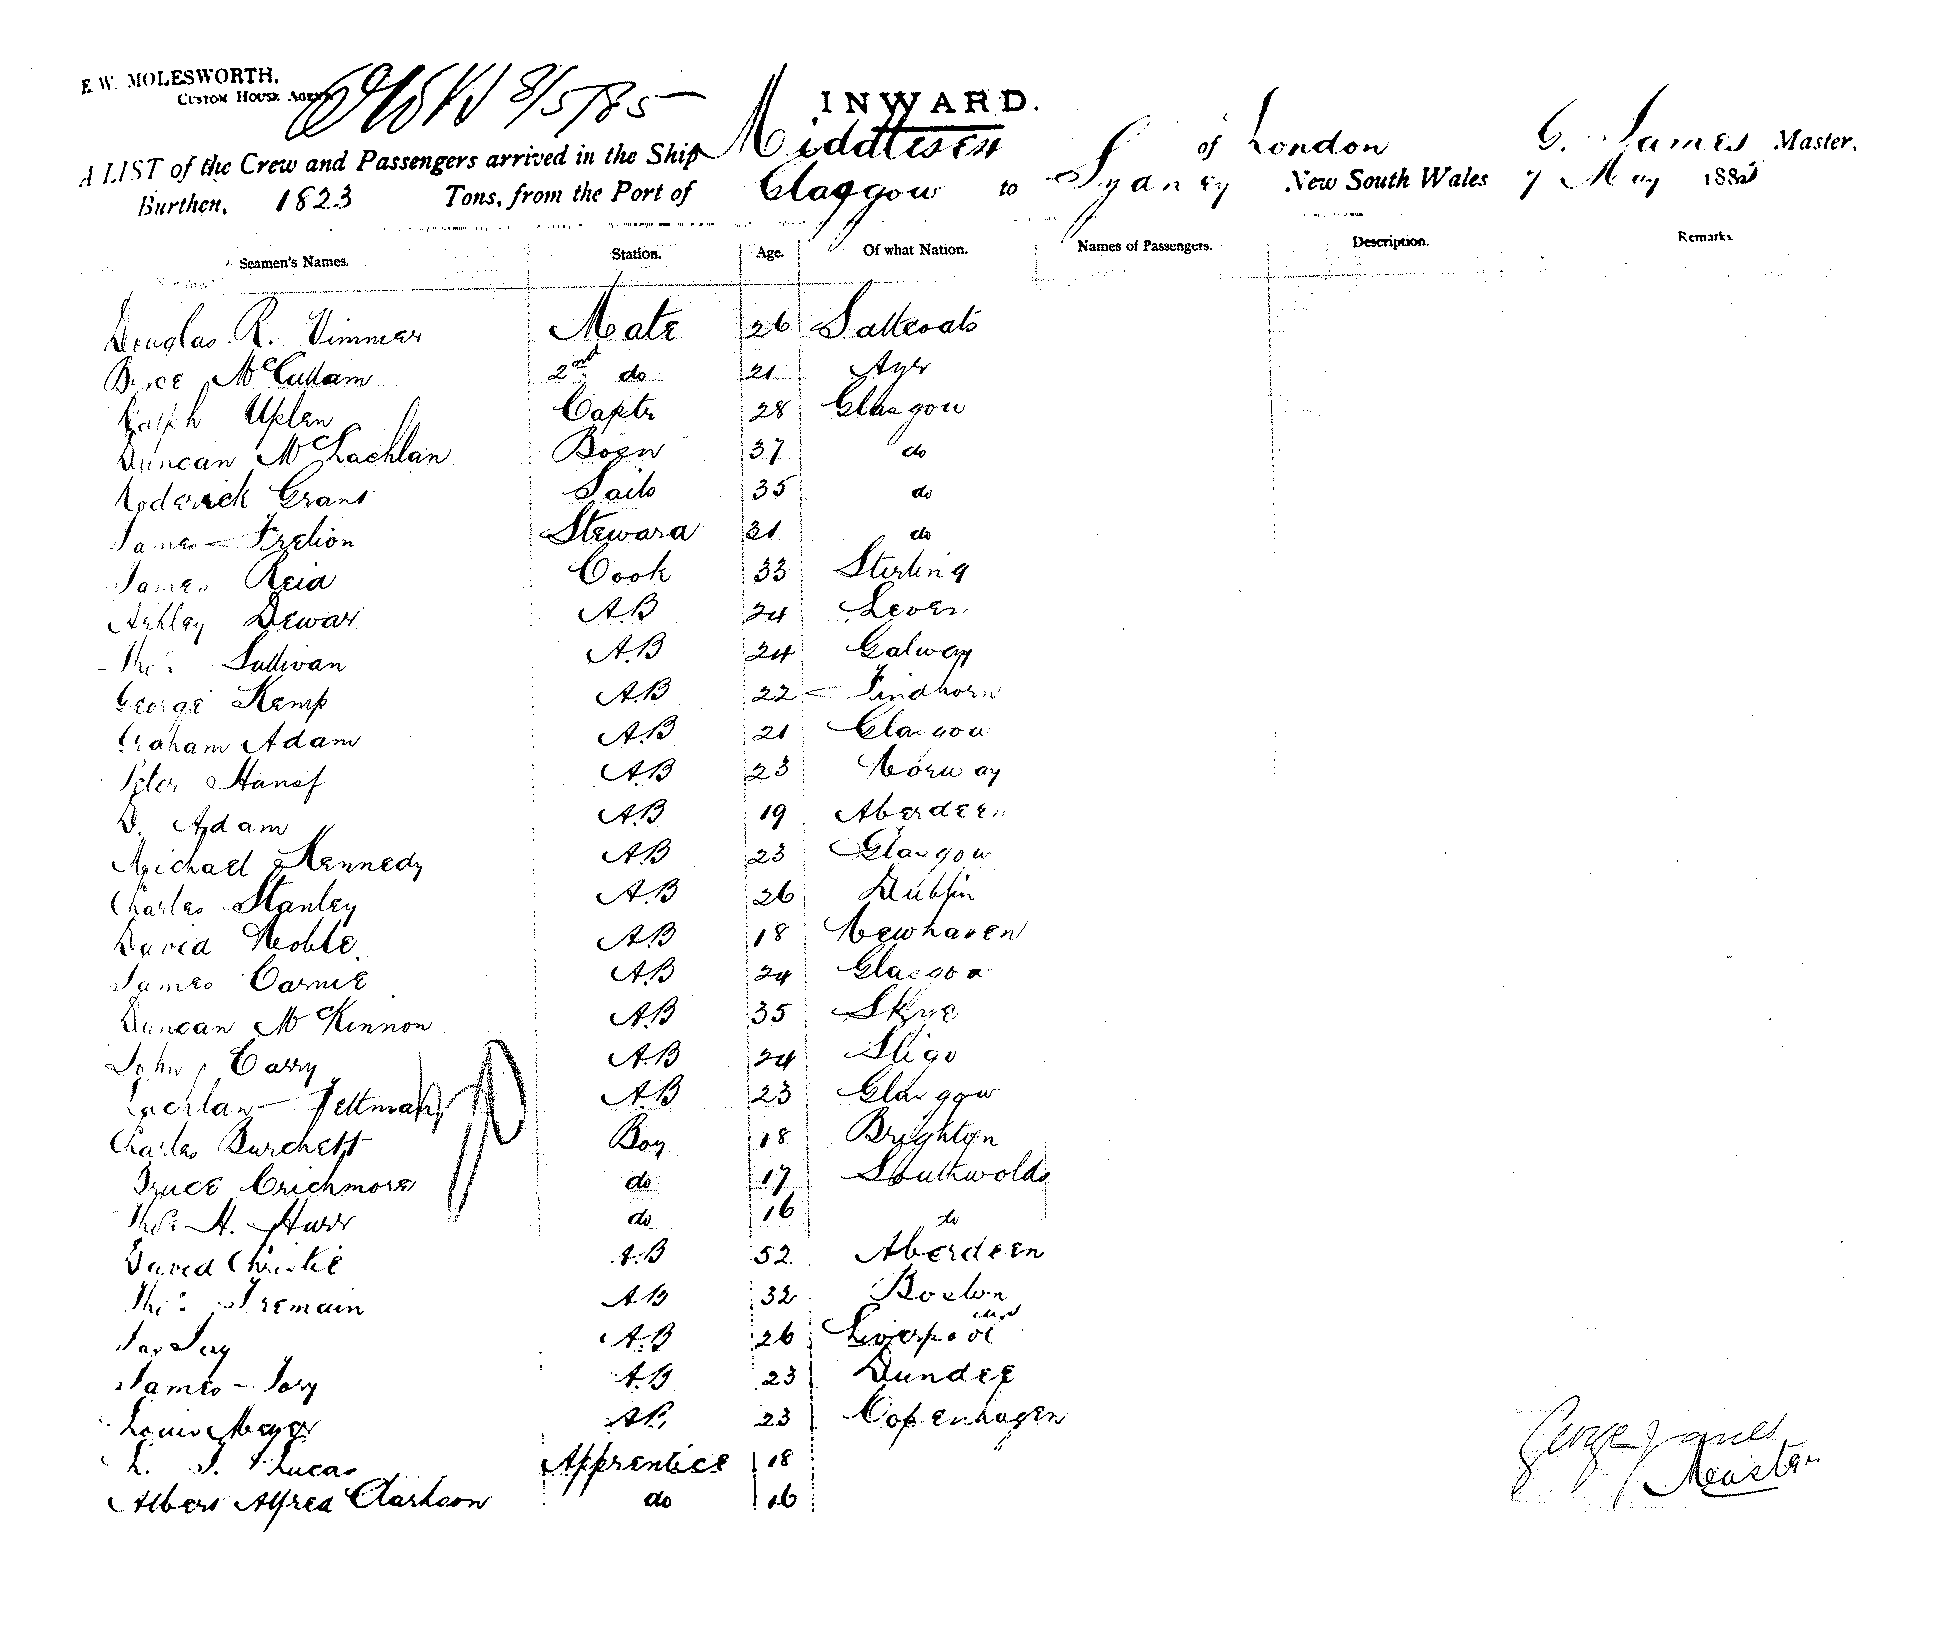 E. W. MOLESWORTH,
CUSTOM HOUSE AGENT
8/5/85
INWARD.
A LIST of the Crew and Passengers arrived in the Ship Middlesex of London G. James Master,
Burthen, 1823 Tons, from the Port of Glasgow to Sydney New South Wales 7 May 1885
Seamen's Names. Station. Age. Of what Nation. Names of Passengers. Description. Remarks.
Douglas R. Vimmer Mate 26 Saltcoats
McCullam 2nd do 21 Ayr
Ralph Uplen Captr 28 Glasgow
Duncan McLachlan Bosn 37 do
Roderick Grant Sails 35 do
James Steward 31 do
James Reid Cook 33 Stirling
Ashley Dewar A.B 24 Leven
Thos Sullivan A.B 24 Galway
George Kemp A.B 22 Findhorn
Graham Adam A.B 21 Glasgow
Peter A.B 23 Norway
D. Adam A.B 19 Aberdeen
Michael Kennedy A.B 23 Glasgow
Charles Stanley A.B 26 Dublin
David Noble A.B 18 Newhaven
James Carnie A.B 24 Glasgow
Duncan McKinnon A.B 35 Skye
John Carry A.B 24 Sligo
Lachlan A.B 23 Glasgow
Charles Burchett Boy 18 Brighton
Bruce Crichmore do 17 Southwolds
Thos H. Hurr do 16 do
David Christie A.B 52 Aberdeen
Thos Tremain A.B 32 Boston
A.B 26 Liverpool
James Tory A.B 23 Dundee
Louis Meyer A.B. 23 Copenhagen
L. J. Lucas Apprentice 18
Albert Alfred Clarkson do 16
George James
Master